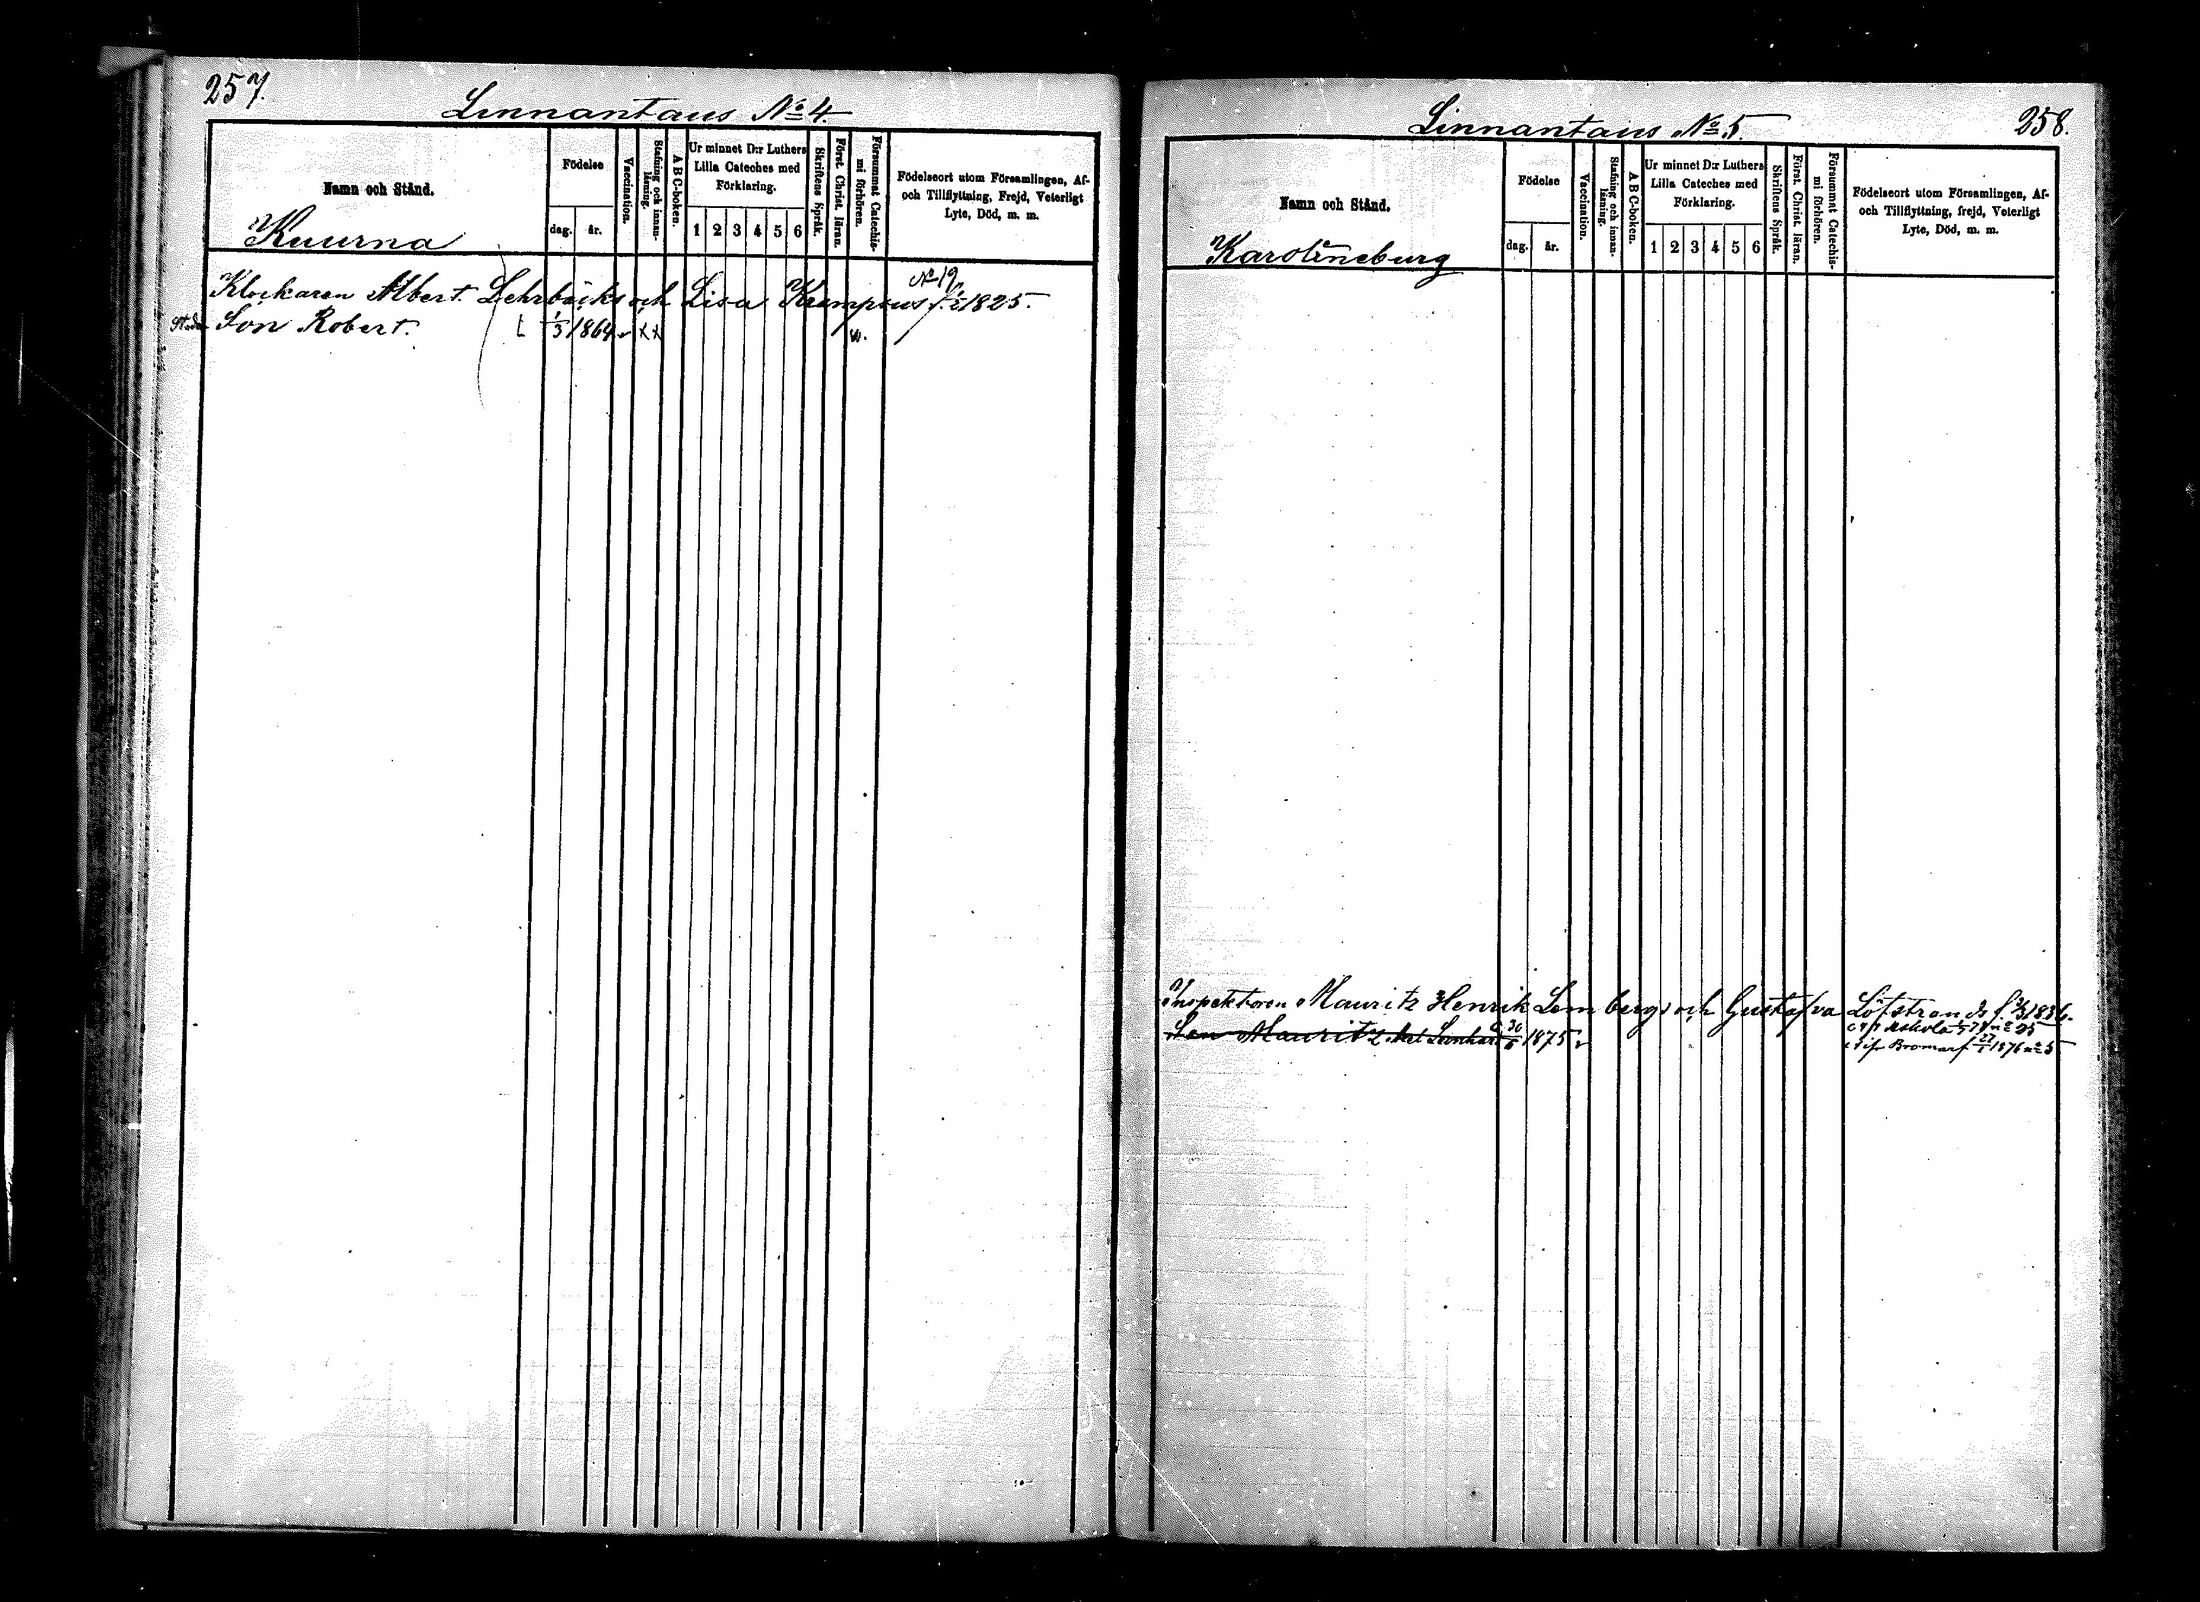 257.
Linnantaus No 4.
Namn och Stånd.
Födelse
dag.
år.
Vaccination.
Stafning och innan-
läsning.
A B C-boken.
Ur minnet D:r Luthers
Lilla Cateches med
Förklaring.
1 2 3 4 5 6
Skriftens Språk.
Först. Christ. läran.
Försummat Catechis-
mi förhören.
Födelseort utom Församlingen, Af-
och Tillflyttning, Frejd, Veterligt
Lyte, Död, m. m.
Kuurna
Klockaren Albert Lehrbäcks och Lisa 1825.
Son Robert. 1/5 1864
258.
Linnantaus No 5.
Namn och Stånd.
Födelse
dag.
år.
Vaccination.
Stafning och innan-
läsning.
A B C-boken.
Ur minnet D:r Luthers
Lilla Cateches med
Förklaring.
1 2 3 4 5 6
Skriftens Språk.
Först. Christ. läran.
Försummat Catechis-
mi förhören.
Födelseort utom Församlingen, Af-
och Tillflyttning, frejd, Veterligt
Lyte, Död, m. m.
Karolineburg
Inspektoren Mauritz Henrik Lemberg och Gustafva Löfstrands f. 1836.
Son Mauritz 1875
Bromarf 1876 no 5